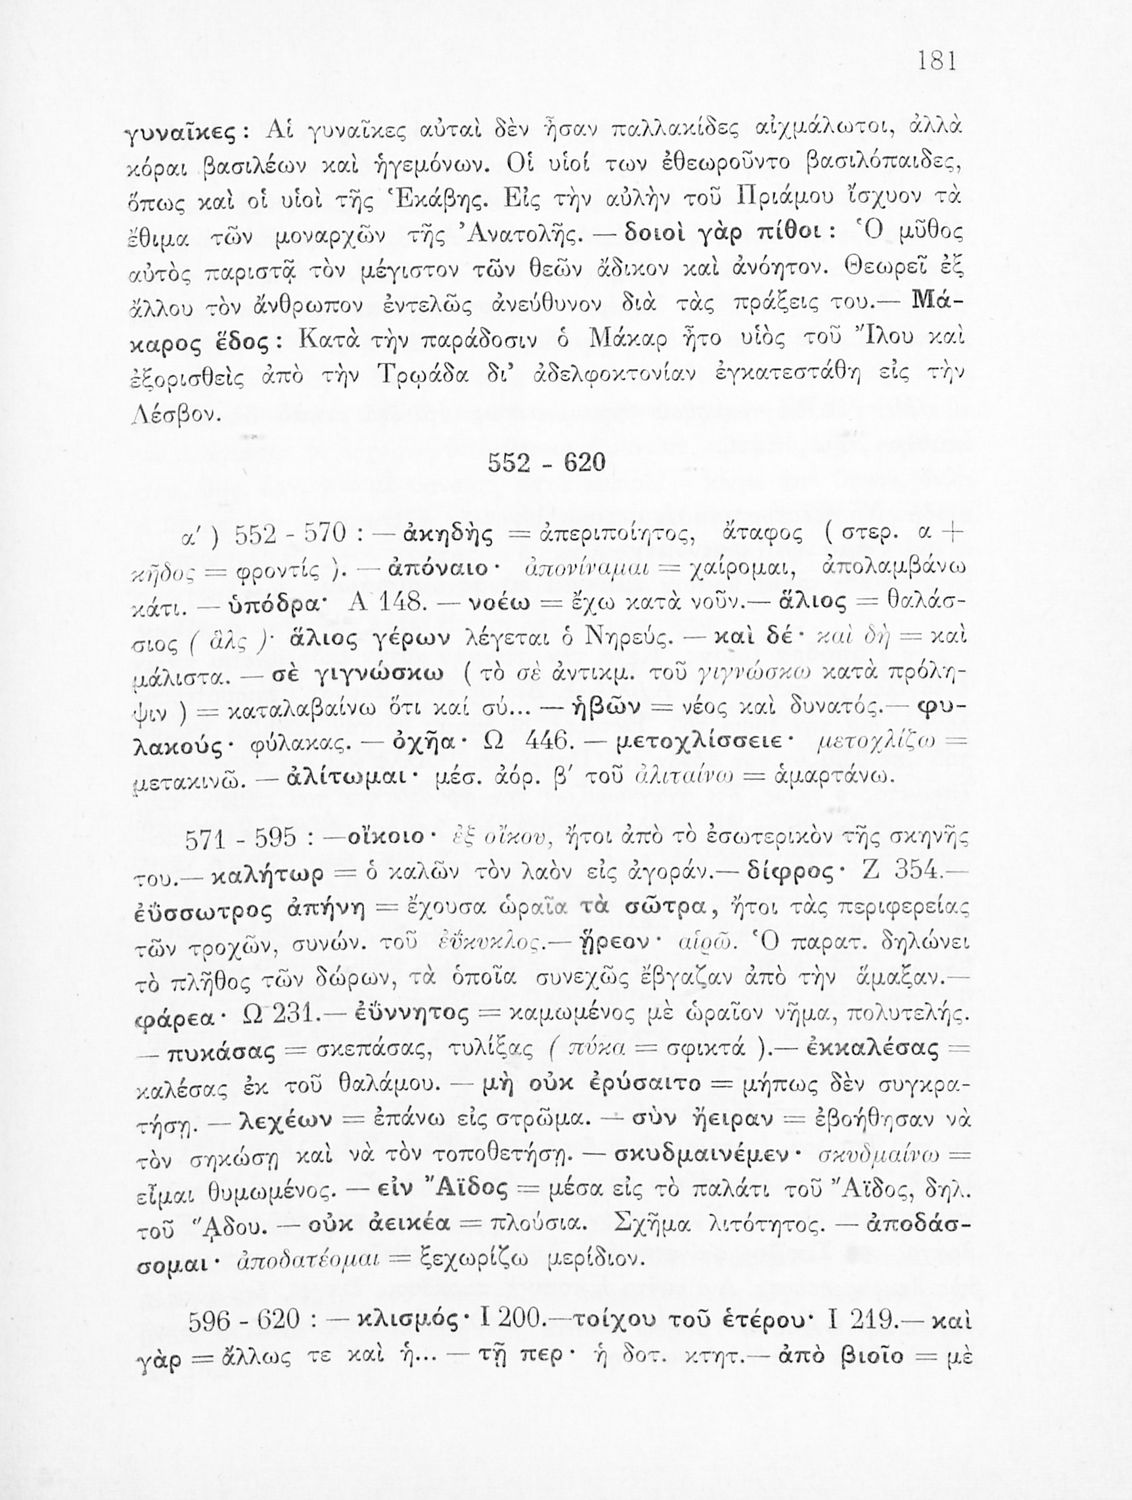 181
γυναῖκες : Αἱ γυναῖκες αὐταὶ δὲν ἦσαν παλλακίδες αἰχμάλωτοι, ἀλλὰ
κόραι βασιλέων καὶ ἡγεμόνων. Οἱ υἱοί των ἐθεωροῦντο βασιλόπαιδες,
ὅπως καὶ οἱ υἱοὶ τῆς Ἑκάβης. Εἰς τὴν αὐλὴν τοῦ Πριάμου ἴσχυον τὰ
ἔθιμα τῶν μοναρχῶν τῆς Ἀνατολῆς. — δοιοὶ γὰρ πίθοι : Ὁ μῦθος
αὐτὸς παριστᾷ τὸν μέγιστον τῶν θεῶν ἄδικον καὶ ἀνόητον. Θεωρεῖ ἐξ
ἄλλου τὸν ἄνθρωπον ἐντελῶς ἀνεύθυνον διὰ τὰς πράξεις του.— Μά-
καρος ἕδος : Κατὰ τὴν παράδοσιν ὁ Μάκαρ ἦτο υἱὸς τοῦ Ἴλου καὶ
ἐξορισθεὶς ἀπὸ τὴν Τρῳάδα δι' ἀδελφοκτονίαν ἐγκατεστάθη εἰς τὴν
Λέσβον.
552 - 620
α' ) 552 - 570 : — ἀκηδὴς = ἀπεριποίητος, ἄταφος ( στερ. α +
κῆδος = φροντίς ). — ἀπόναιο · ἀπονίναμαι = χαίρομαι, ἀπολαμβάνω
κάτι. — ὑπόδρα· Α 148. — νοέω = ἔχω κατὰ νοῦν.— ἅλιος = θαλάσ-
σιος ( ἅλς )· ἅλιος γέρων λέγεται ὁ Νηρεύς. — καὶ δέ · καὶ δὴ = καὶ
μάλιστα. — σὲ γιγνώσκω ( τὸ σὲ ἀντικμ. τοῦ γιγνώσκω κατὰ πρόλη-
ψιν ) = καταλαβαίνω ὅτι καί σύ... — ἡβῶν = νέος καὶ δυνατός.— φυ-
λακούς · φύλακας. — ὀχῆα · Ω 446. — μετοχλίσσειε · μετοχλίζω =
μετακινῶ. — ἀλίτωμαι · μέσ. ἀόρ. β' τοῦ ἀλιταίνω = ἁμαρτάνω.
571 - 595 : —οἴκοιο · ἐξ οἴκου, ἤτοι ἀπὸ τὸ ἐσωτερικὸν τῆς σκηνῆς
του.— καλήτωρ = ὁ καλῶν τὸν λαὸν εἰς ἀγοράν.— δίφρος · Ζ 354.—
ἐΰσσωτρος ἀπήνη = ἔχουσα ὡραῖα τὰ σῶτρα, ἤτοι τὰς περιφερείας
τῶν τροχῶν, συνών. τοῦ ἐΰκυκλος.— ᾕρεον · αἱρῶ. Ὁ παρατ. δηλώνει
τὸ πλῆθος τῶν δώρων, τὰ ὁποῖα συνεχῶς ἔβγαζαν ἀπὸ τὴν ἅμαξαν.—
φάρεα · Ω 231.— ἐΰννητος = καμωμένος μὲ ὡραῖον νῆμα, πολυτελής.
— πυκάσας = σκεπάσας, τυλίξας ( πύκα = σφικτά ).— ἐκκαλέσας =
καλέσας ἐκ τοῦ θαλάμου. — μὴ οὐκ ἐρύσαιτο = μήπως δὲν συγκρα-
τήσῃ. — λεχέων = ἐπάνω εἰς στρῶμα. — σὺν ἤειραν = ἐβοήθησαν νὰ
τὸν σηκώσῃ καὶ νὰ τὸν τοποθετήσῃ. — σκυδμαινέμεν · σκυδμαίνω =
εἶμαι θυμωμένος. — εἰν Ἄϊδος = μέσα εἰς τὸ παλάτι τοῦ Ἄϊδος, δηλ.
τοῦ Ἅδου. — οὐκ ἀεικέα = πλούσια. Σχῆμα λιτότητος. — ἀποδάσ-
σομαι · ἀποδατέομαι = ξεχωρίζω μερίδιον.
596 - 620 : — κλισμός · Ι 200.—τοίχου τοῦ ἑτέρου· Ι 219.— καὶ
γὰρ = ἄλλως τε καὶ ἡ... — τῇ περ · ἡ δοτ. κτητ.— ἀπὸ βιοῖο = μὲ